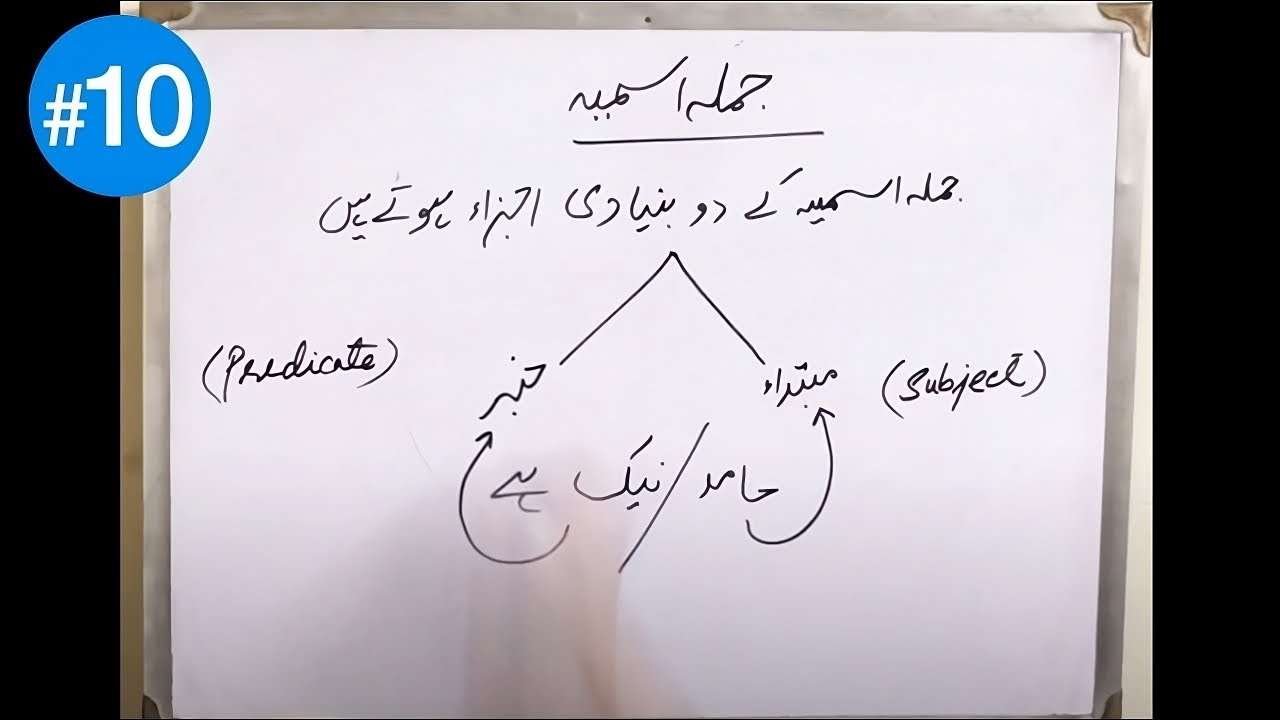 #10
جملہ اسمیہ
جملہ اسمیہ کے دو بنیادی اجزاء ہوتے ہیں
مبتداء (Subject)
خبر (Predicate)
حامد / نیک ہے